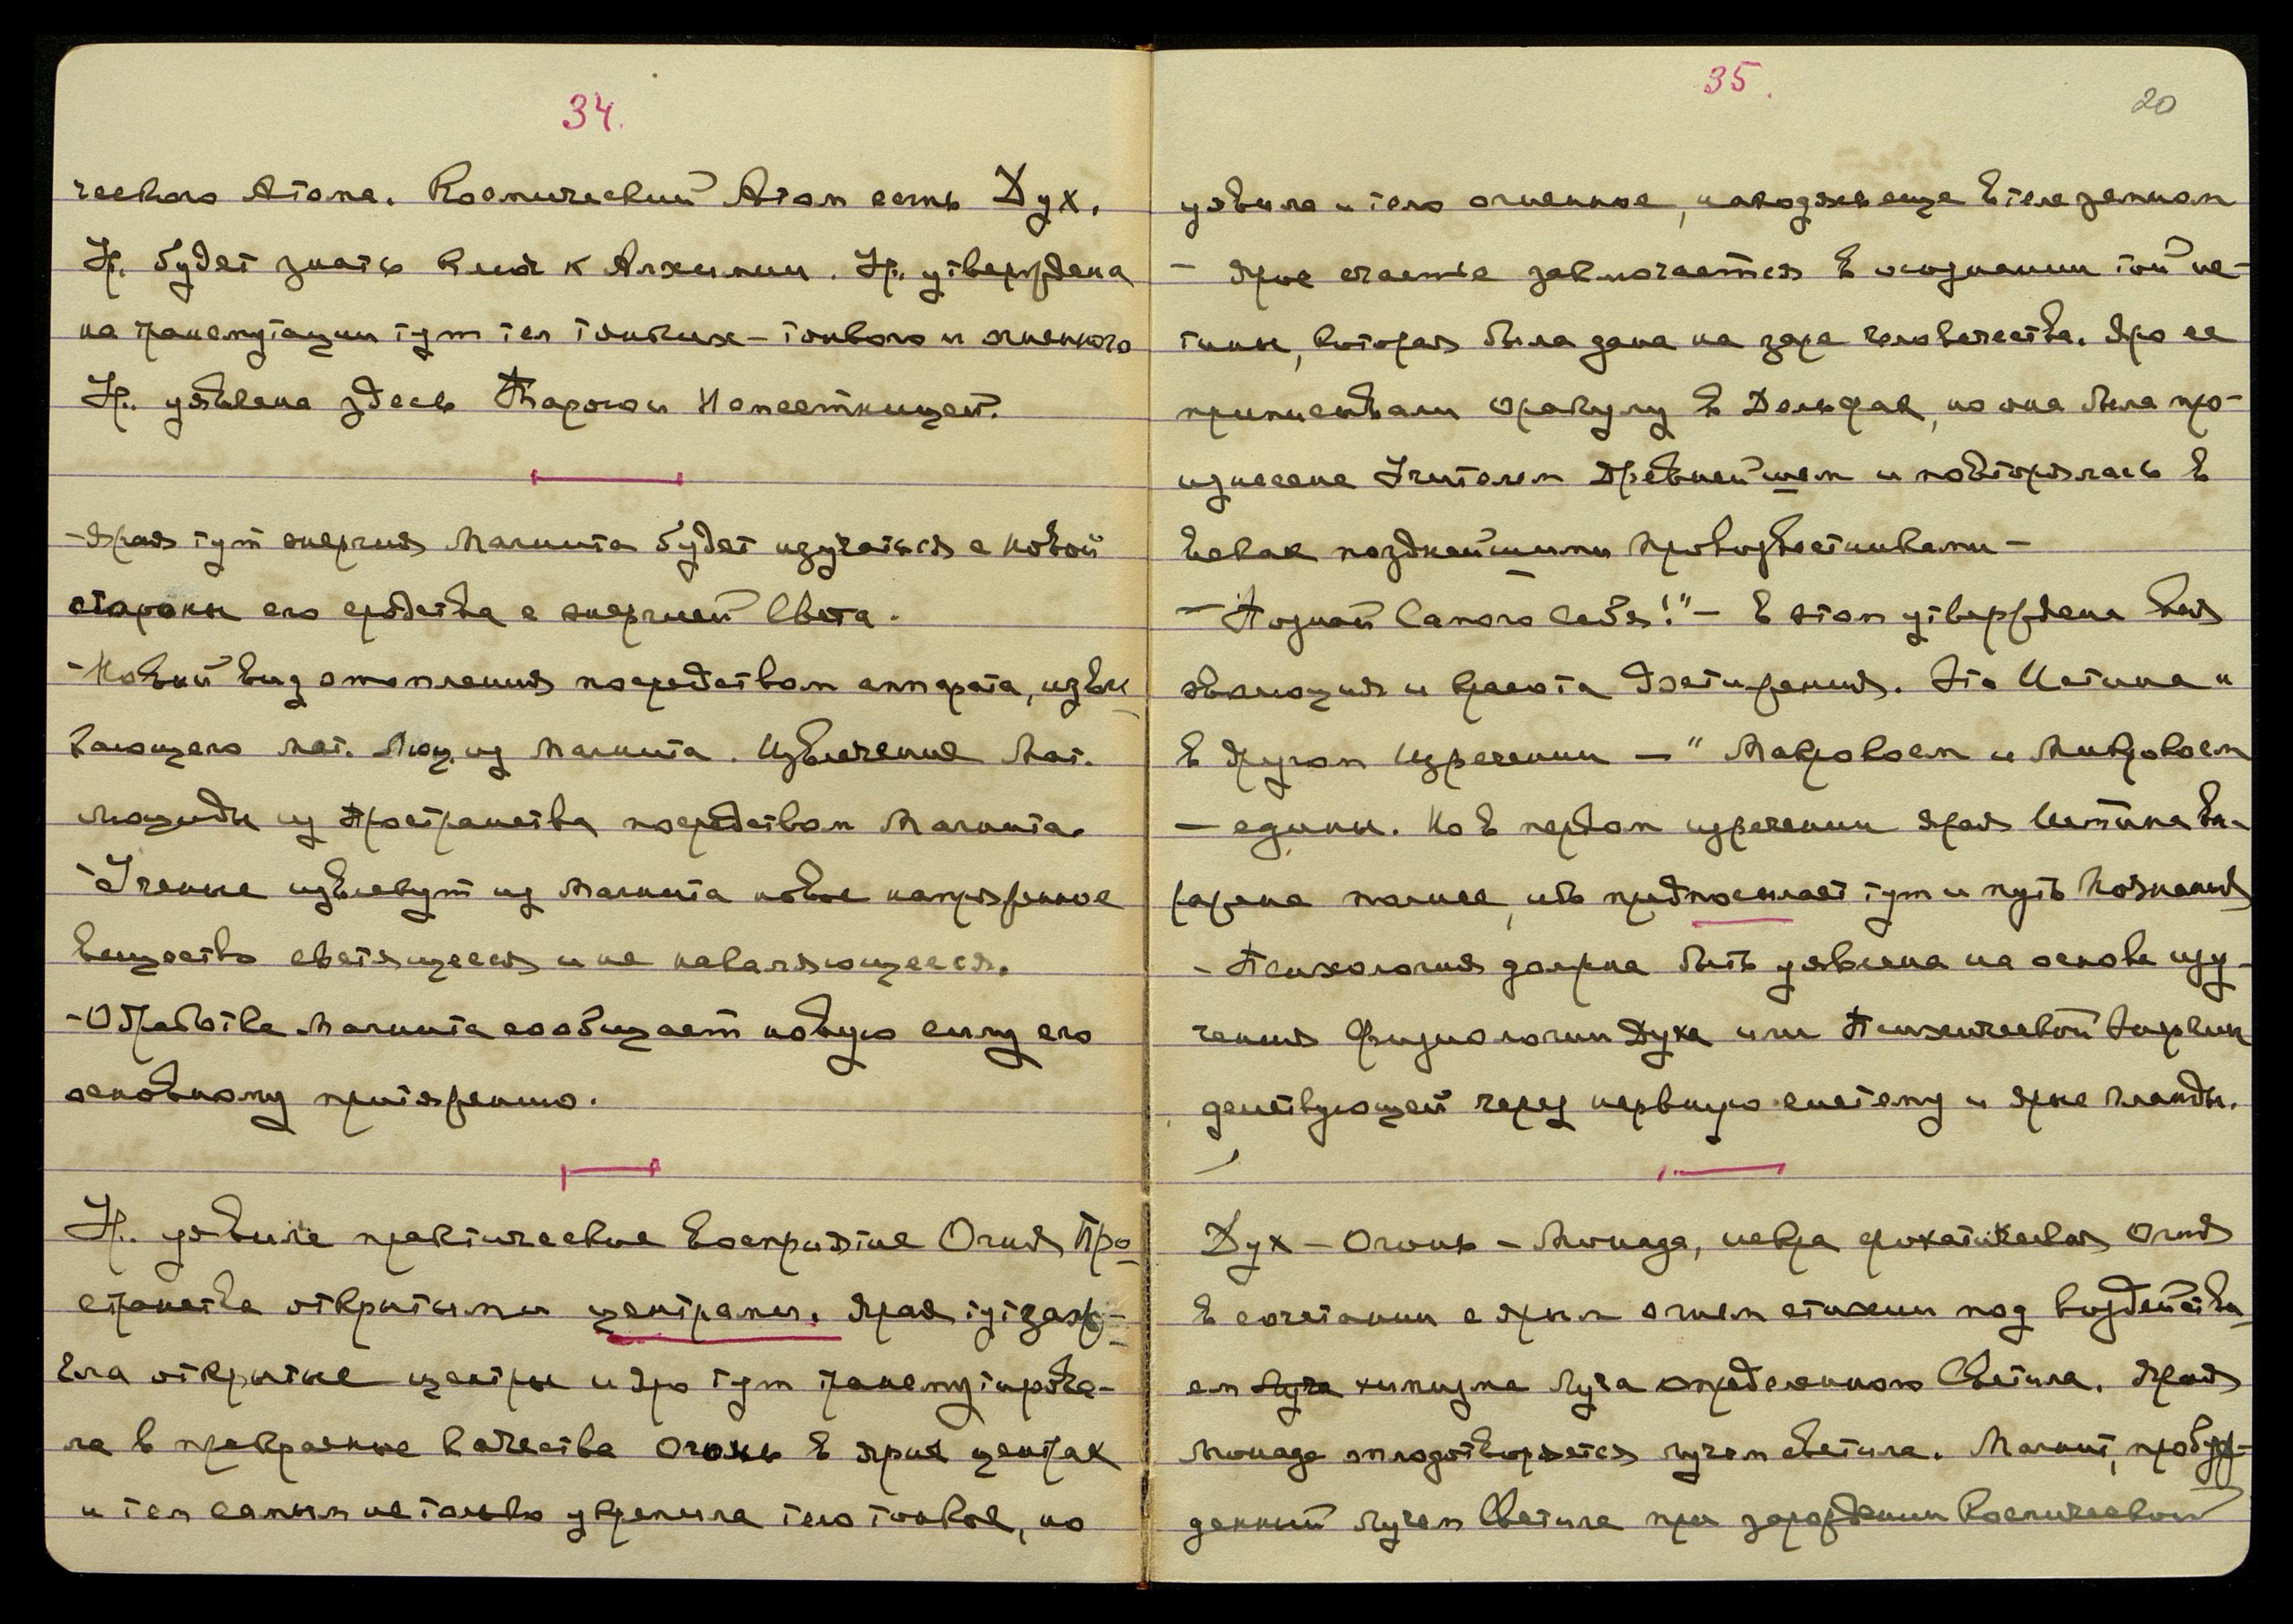 34.
ческого Атома. Космический Атом есть Дух.
Ур. будет знать Ключ к Алхимии. Ур. утверждена
на трансмутации тут тел тонких – тонкого и огненного
Ур. уявлена здесь Твароги Наместницей.
– Ярая тут энергия Магнита будет изучаться с новой
стороны его сродства с энергией Света.
– Новый вид отопления посредством аппарата, извле
кающего Мат. Люц. из Магнита. Извлечение Мат.
Люциды из Пространства посредством Магнита.
– Ученые извлекут из Магнита новое напряженное
вещество светящееся и не накаляющееся.
– Обработка Магнита сообщает новую силу его
основному притяжению.
Ур. уявила практическое восприятие Огня Про
странства открытыми центрами. Ярая
ела открытые центры и яро тут трансмутирова-
ла в прекрасные качества Огонь в ярых центрах
и тем самым не только укрепила тело тонкое, но
35.
20
уявила и тело огненное, находясь еще в теле земном
– Ярое счастье заключается в осознании той ис-
тины, которая была дана на заре человечества. Яро ее
приписывали оракулу в Дельфах, но она была про-
изнесена Учителем Древнейшем и повторялась в
веках позднейшими провозвестниками –
– "Познай Самого Себя!" – в этом утверждена вся
эволюция и красота достижения. Эта Истина и
в другом Изречении – "Макрокосм и Микрокосм
– едины. Но в первом изречении ярая Истина вы-
ражена полнее, ибо предпосылает тут и путь познания
– Психология должна быть уявлена на основе изу-
чения Физиологии Духа или Психической Энергии
действующей через нервную систему и ярые гланды.
Дух – Огонь – Монада, искра фохатическая Огня
в сочетании с ярым огнем стихии под воздействи
ем Луча химизма Луча определенного Светила. Ярая
Монада оплодотворяется лучем светила. Магнит, пробуж-
денный лучем Светила при зарождении Космической